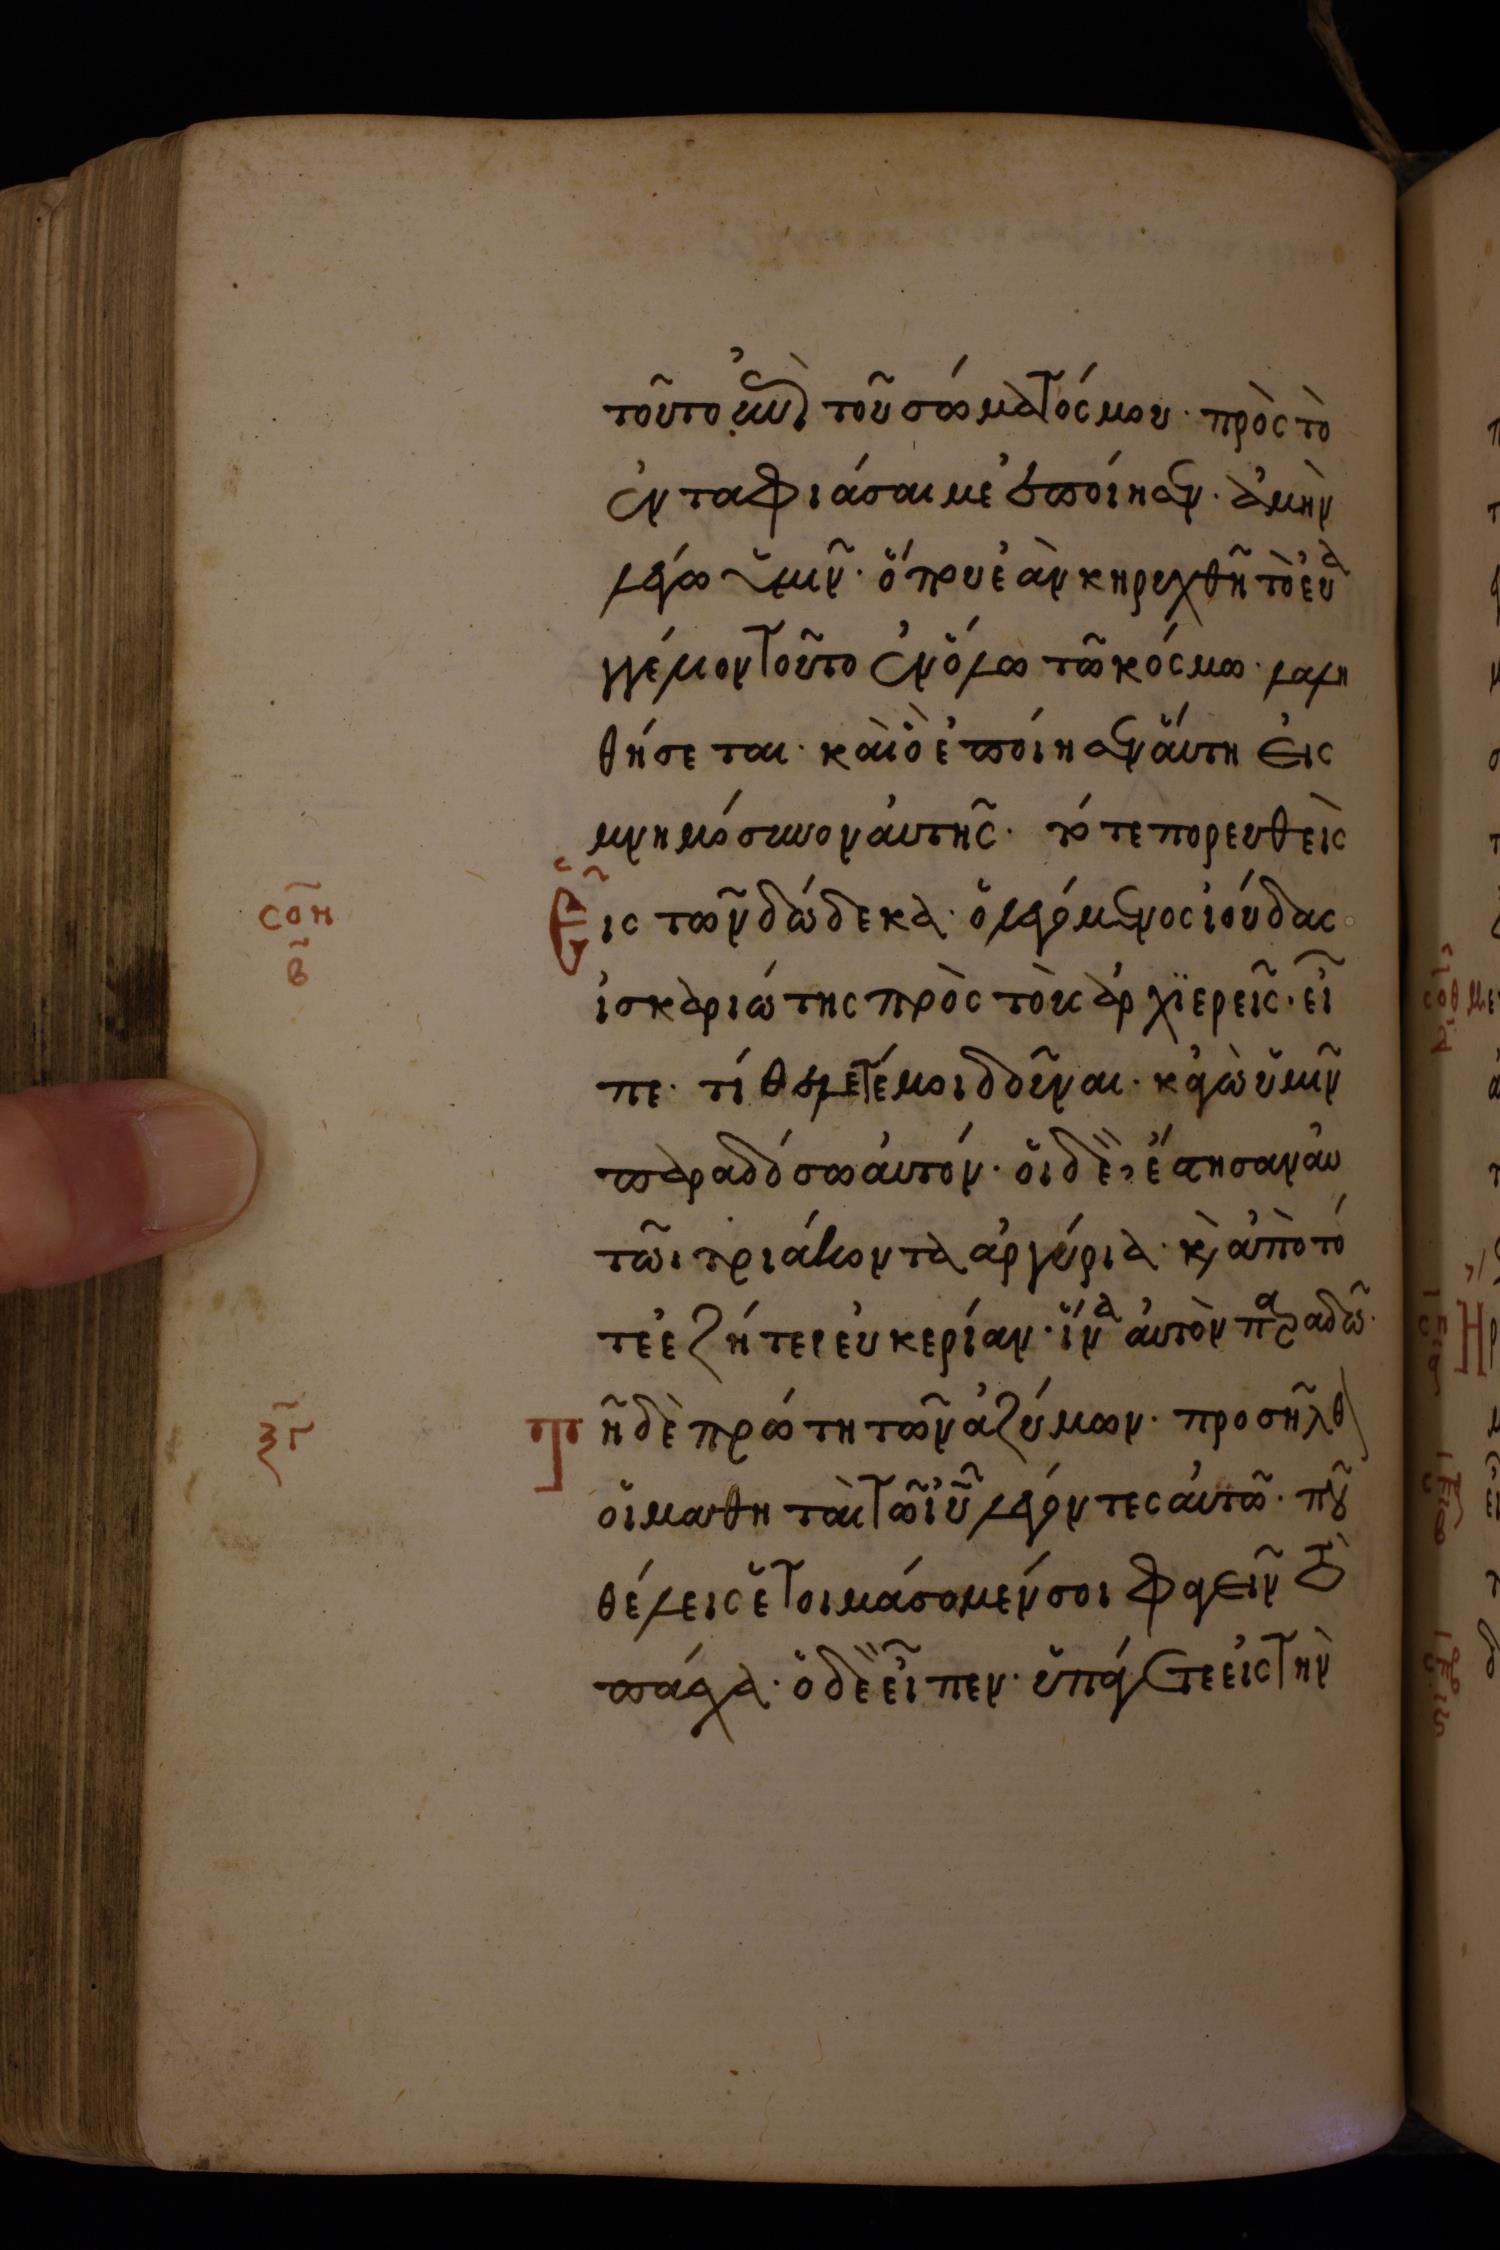 τοῦτο ἐπὶ τοῦ σώματός μου· πρὸς τὸ
ἐνταφιάσαι με ἐποίησεν· ἀμὴν
λέγω ὑμῖν· ὅπου ἐὰν κηρυχθῆ τὸ εὐα
γγέλιον τοῦτο ἐν ὅλω τῶ κόσμω· λαλη
θήσεται· καὶ ὃ ἐποίησεν ἅυτη εἰς
μνημόσυνον ἀυτῆς· τότε πορευθεὶς
εἷς τῶν δώδεκα· ὁ λεγόμενος ἰούδας
σοη
β
ἰσκαριώτης πρὸς τοὺς ἀρχϊερεῖς· εἶ
πε· τί θέλετέ μοι δοῦναι· κἀγὼ ὑμῖν
παραδώσω ἀυτόν· ὁι δὲ ἔστησαν ἀυ
τῶι τριάκοντα ἀργύρια· κὶ ἀπὸ τό
τε ἐζήτει ἐυκερίαν· ἵνα ἀυτὸν παραδῶ·
Τῆ δὲ πρώτη τῶν ἀζύμων· προσῆλθ
ξγ
ὁι μαθηταὶ τῶ ἰῦ λέγοντες ἀυτῶ· ποῦ
θέλεις ἑτοιμάσομέν σοι φαγεῖν τὸ
πάσχα· ὁ δὲ εἶπεν· ὑπάγετε εἰς τὴν